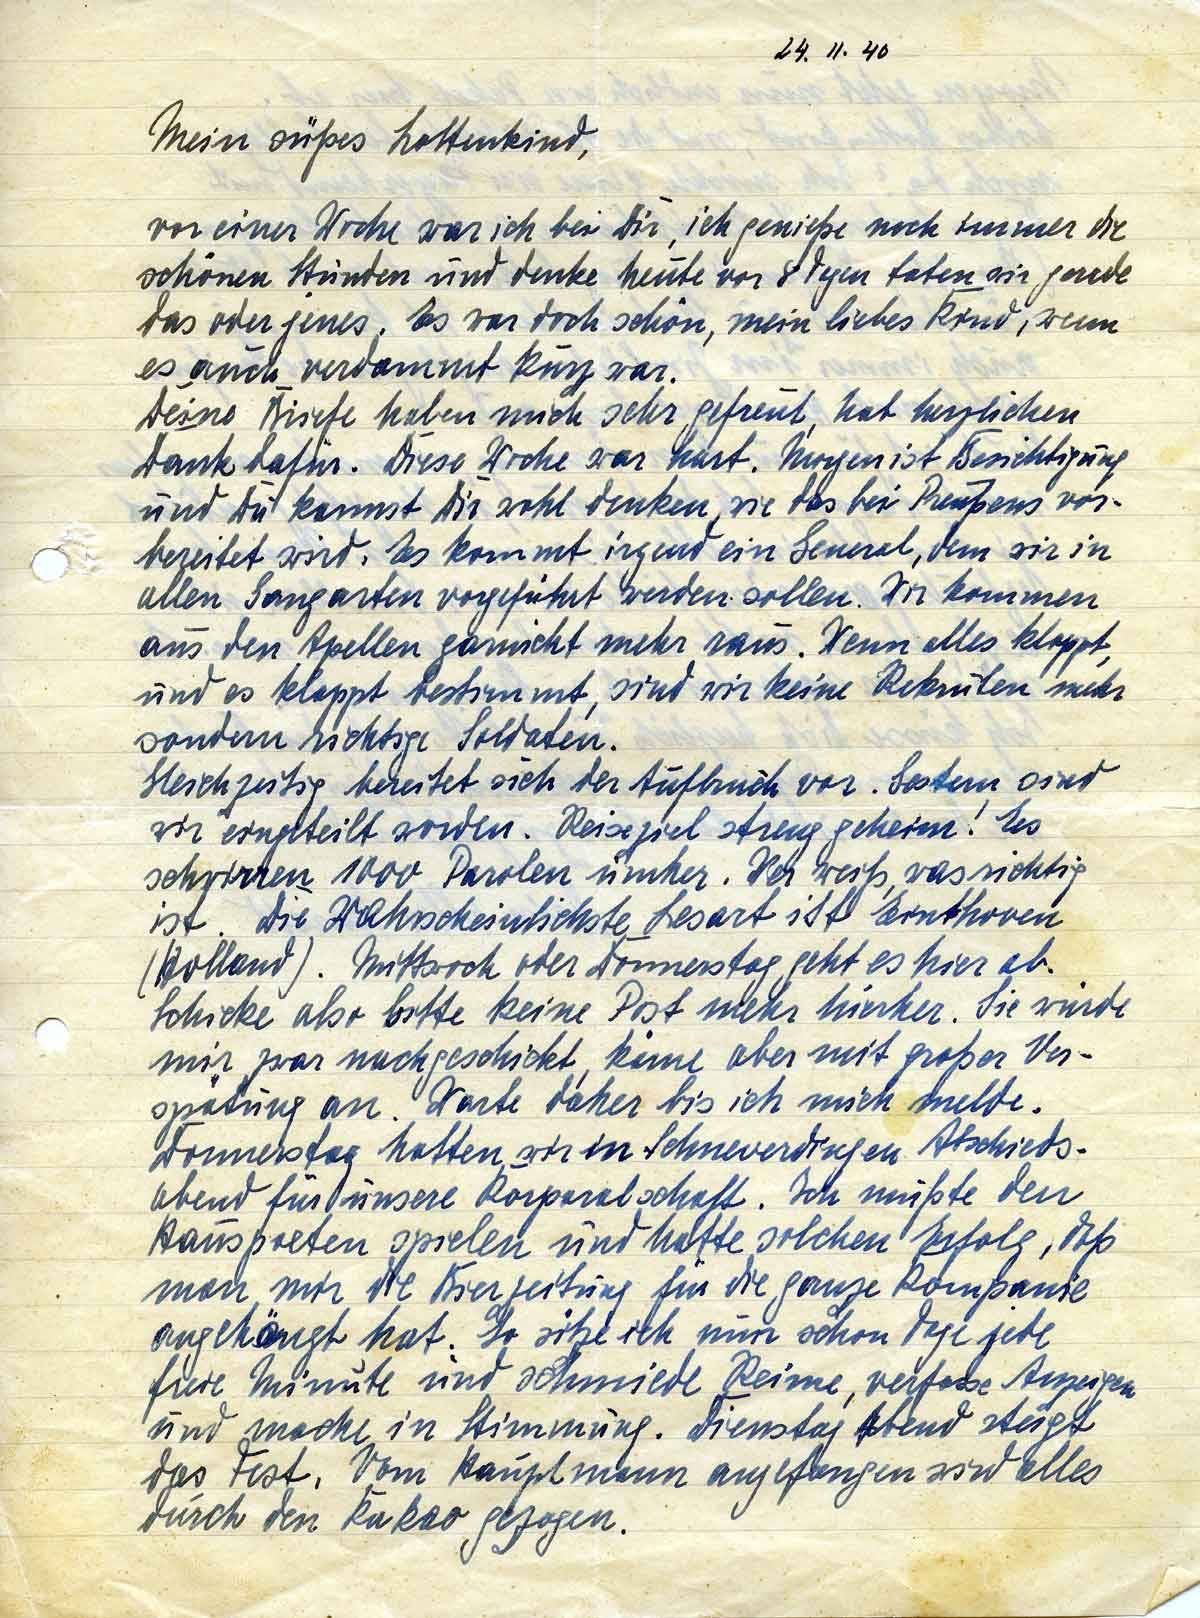 24. 11. 40
Mein süßes Lottenkind,
vor einer Woche war ich bei Dir, ich genieße noch immer die
schönen Stunden und denke heute vor 8 Tagen taten wir gerade
das oder jenes. Es war doch schön, mein liebes Kind, wenn
es auch verdammt kurz war.
Deine Briefe haben mich sehr gefreut, hab herzlichen
Dank dafür. Diese Woche war hart. Morgen ist Besichtigung
und Du kannst Dir wohl denken, wie das bei Preußens vor-
bereitet wird. Es kommt irgend ein General, dem wir in
allen Gangarten vorgeführt werden sollen. Wir kommen
aus den Apellen garnicht mehr raus. Wenn alles klappt,
und es klappt bestimmt, sind wir keine Rekruten mehr
sondern richtige Soldaten.
Gleichzeitig bereitet sich der Aufbruch vor. Gestern sind
wir eingeteilt worden. Reiseziel streng geheim! Es
schwirren 1000 Parolen umher. Wer weiß, was richtig
ist. Die Wahrscheinlichste Lesart ist Einthoven
(Holland). Mittwoch oder Donnerstag geht es hier ab.
Schicke also bitte keine Post mehr hierher. Sie würde
mir zwar nachgeschickt, käme aber mit großer Ver-
spätung an. Warte daher bis ich mich melde.
Donnerstag hatten wir in Schneverdingen Abschieds-
abend für unsere Korporalschaft. Ich mußte den
Hauspoeten spielen und hatte solchen Erfolg, daß
man mir die Bierzeitung für die ganze Kompanie
angehängt hat. So sitze ich nun schon Tage jede
freie Minute und schmiede Reime, verfasse Anzeigen
und mache in Stimmung. Dienstag Abend steigt
das Fest. Vom Hauptmann angefangen wird alles
durch den Kakao gezogen.